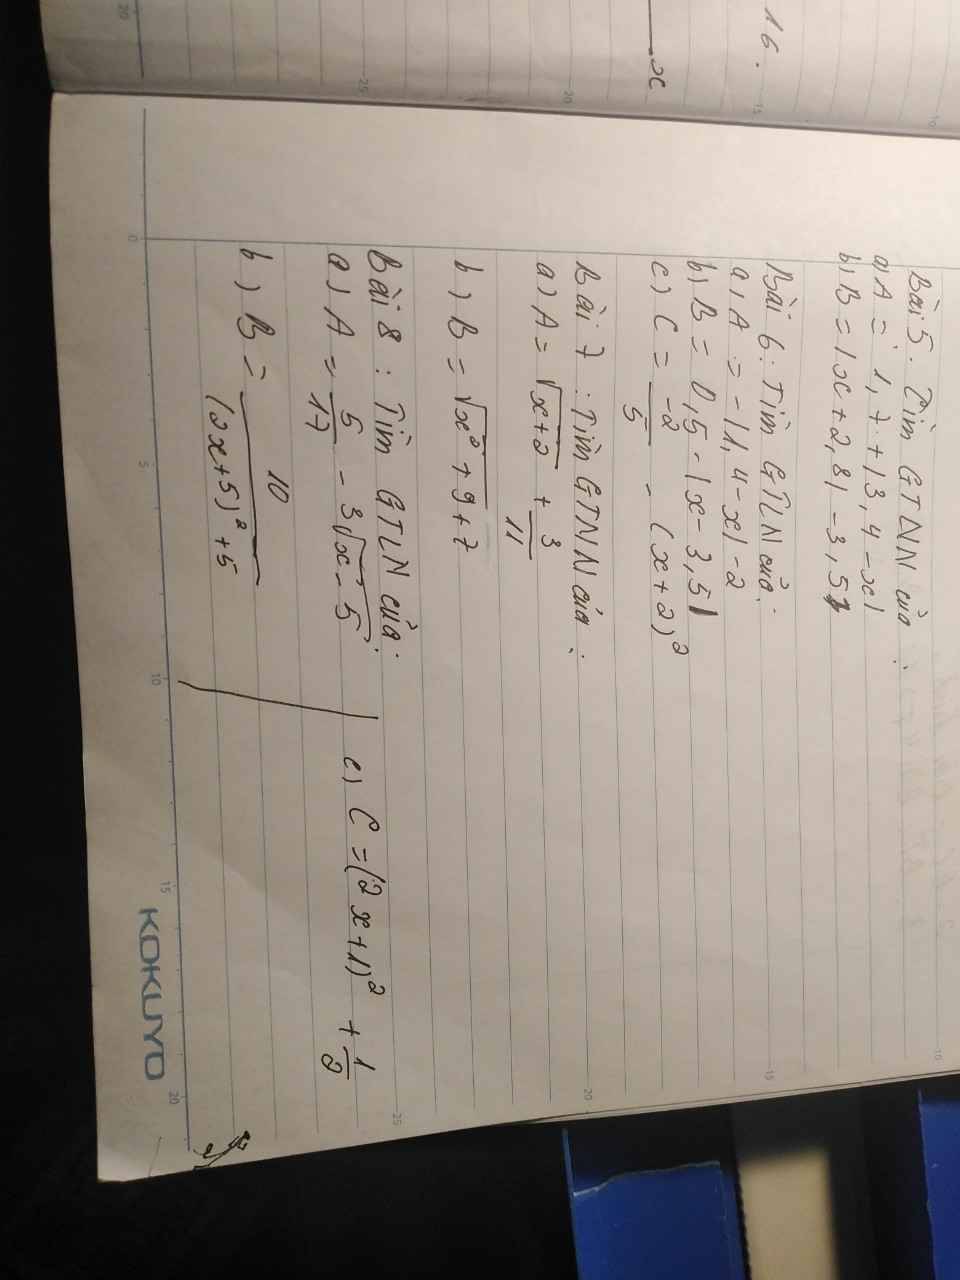 16.
x
Bài 5. Tìm GTNN của :
a) A = 1,7 + |3,4 - x|
b) B = |x + 2,8| - 3,5
Bài 6 : Tìm GTLN của :
a) A = - |1,4 - x| - 2
b) B = 0,5 - |x - 3,5|
c) C = -2/5 - (x + 2)²
Bài 7 : Tìm GTNN của :
a) A = √x+2 + 3/11
b) B = √x² + 9 + 7
Bài 8 : Tìm GTLN của :
a) A = 5/17 - 3√x - 5
b) B = 10/(2x+5)² + 5
c) C = (2x + 1)² + 1/2
KOKUYO